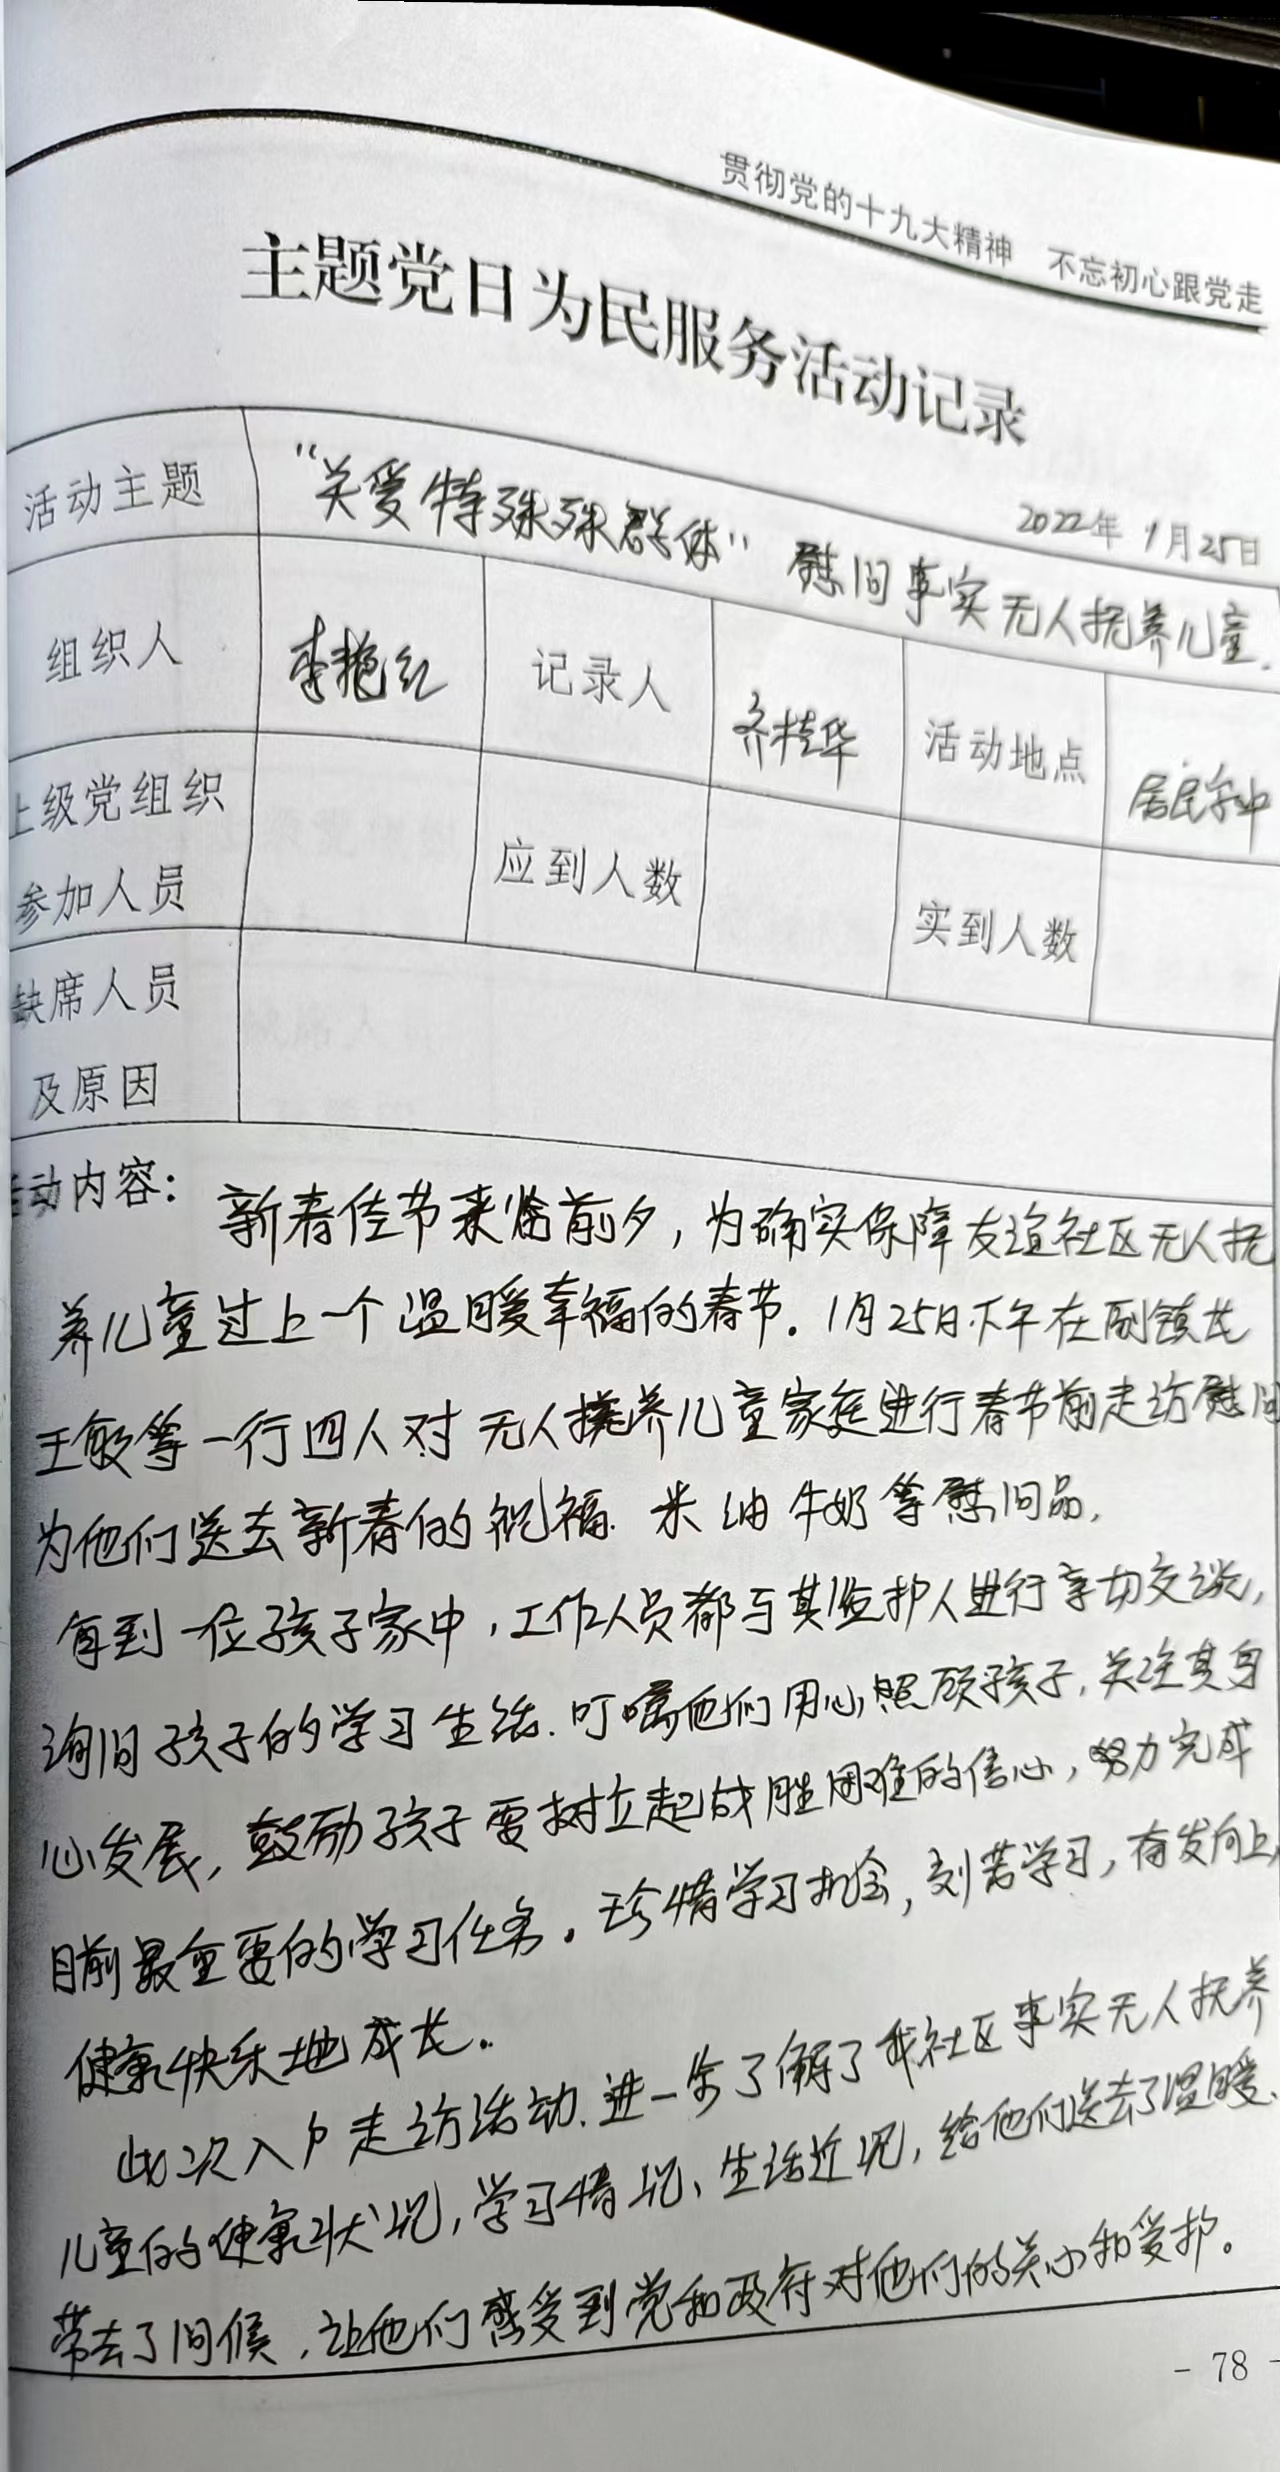 贯彻党的十九大精神 不忘初心跟党走
主题党日为民服务活动记录
2022年1月25日
活动主题 “关爱特殊殊群体”慰问事实无人抚养儿童.
组织人 李艳红 记录人 齐桂华 活动地点 居民家中
上级党组织
参加人员 应到人数 实到人数
缺席人员
及原因
活动内容： 新春佳节来临前夕，为确实保障友谊社区无人抚
养儿童过上一个温暖幸福的春节。1月25日下午在副镇长
王敏等一行四人对无人抚养儿童家庭进行春节前走访慰问
为他们送去新春的祝福.米油牛奶等慰问品,
每到一位孩子家中，工作人员都与其监护人进行亲切交谈,
询问孩子的学习生活.叮嘱他们用心照顾孩子,关注其身
心发展，鼓励孩子要树立起战胜困难的信心，努力完成
目前最重要的学习任务。珍惜学习机会，刻苦学习，奋发向上,
健康快乐地成长。
此次入户走访活动.进一步了解了我社区事实无人抚养
儿童的健康状况，学习情况、生活近况，给他们送去了温暖.
带去了问候，让他们感受到党和政府对他们的关心和爱护。
- 78 -